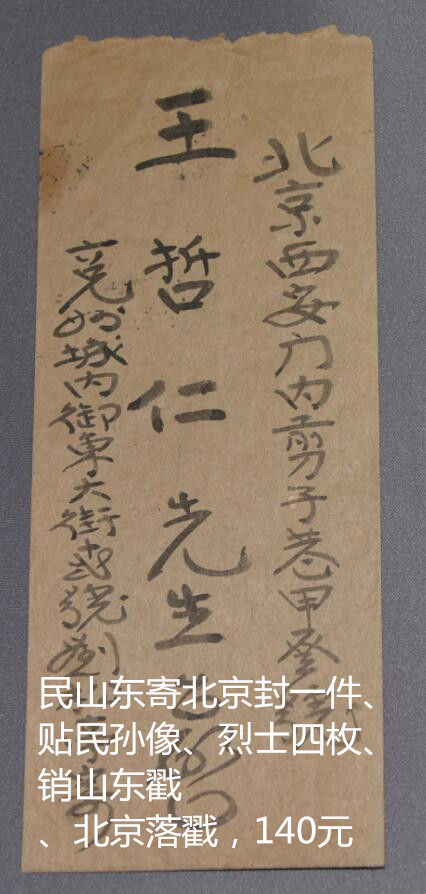 北京西安门内剪子巷甲
王哲仁先生
兖州城内御车大街
民山东寄北京封一件、
贴民孙像、烈士四枚、
销山东戳
、北京落戳，140元